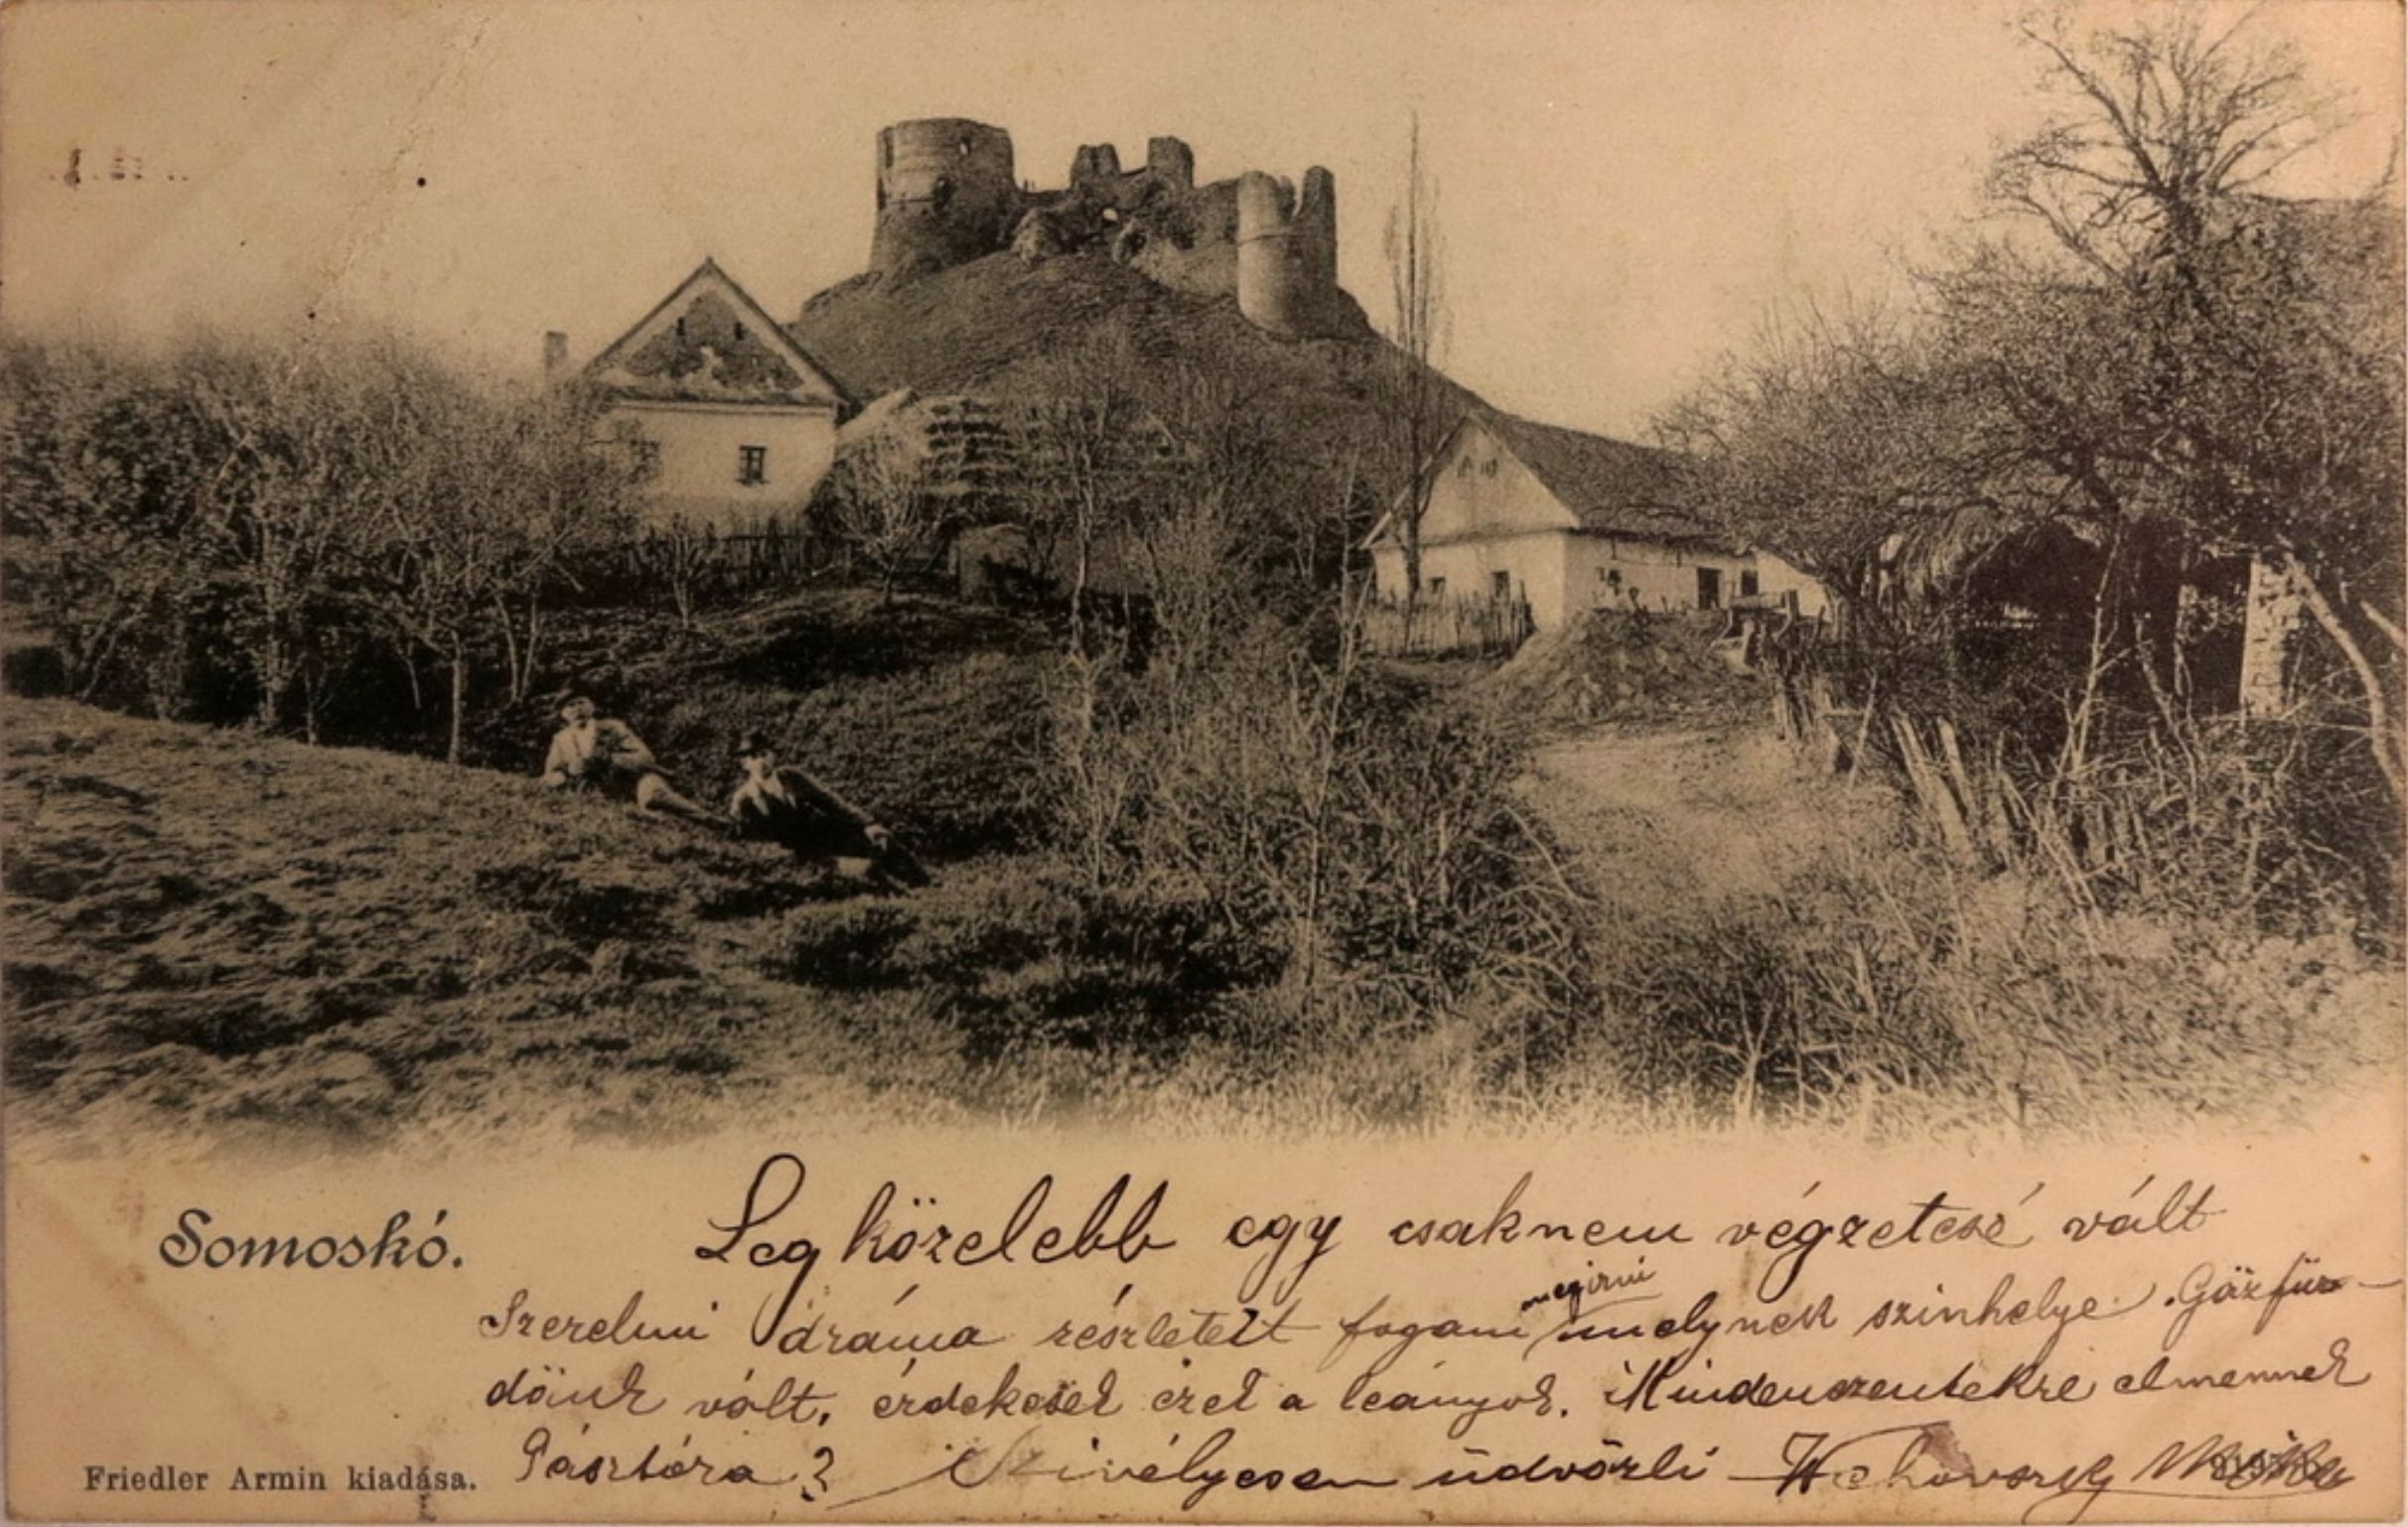 Somoskó.
Legközelebb egy csaknem végzetessé vált
Szerelmi dráma részleteit fogom megirni melynek szinhelye Gőzfür-
dőnk vólt, érdekesek ezek a leányok. Mindenszentekre elmennek
Pásztóra? Szivélyesen üdvözli
Friedler Armin kiadása.